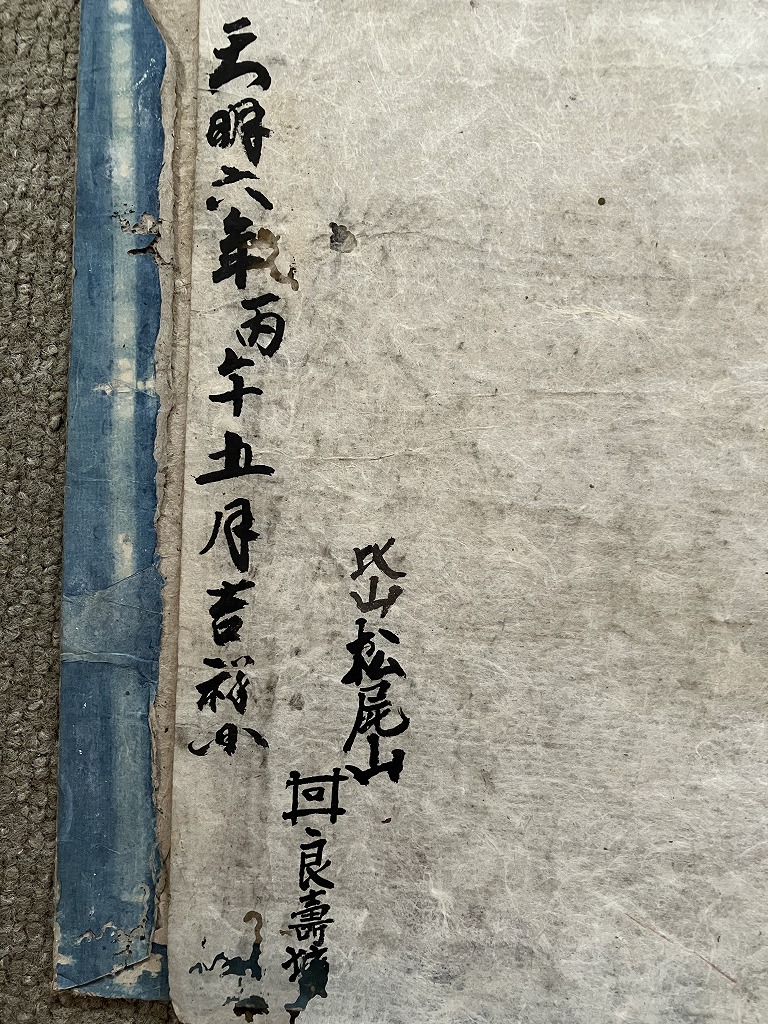 比山松尾山
回良壽
天明六年丙午五月吉祥日